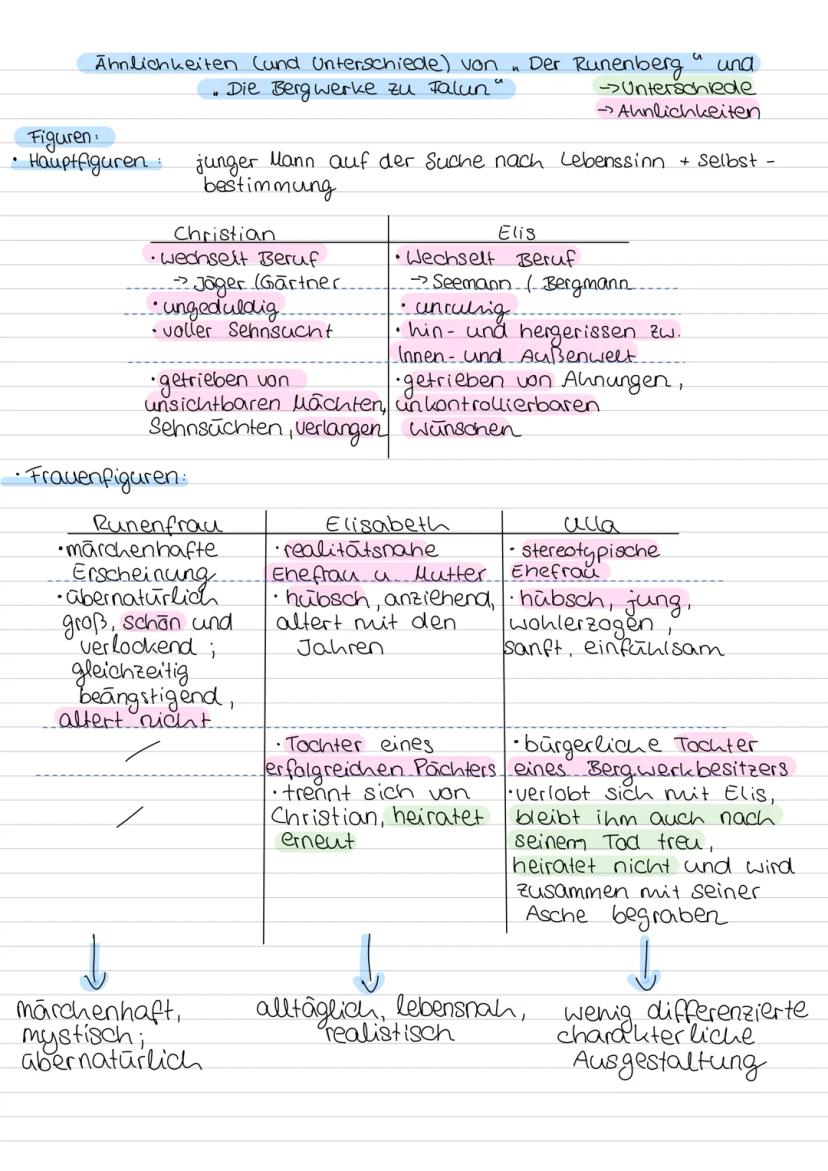 Ähnlichkeiten (und Unterschiede) von „Der Runenberg“ und
„Die Bergwerke zu Falun“
→ Unterschiede
→ Ähnlichkeiten
Figuren:
• Hauptfiguren: junger Mann auf der Suche nach Lebenssinn + Selbst-
bestimmung
Christian
• wechselt Beruf
→ Jäger/Gärtner
• ungeduldig
• voller Sehnsucht
• getrieben von
unsichtbaren Mächten,
Sehnsüchten, verlangen
Elis
• Wechselt Beruf
→ Seemann / Bergmann
• unruhig
• hin- und hergerissen zw.
Innen- und Außenwelt
• getrieben von Ahnungen,
unkontrollierbaren
Wünschen
• Frauenfiguren:
Runenfrau
• märchenhafte
Erscheinung
• übernatürlich
groß, schön und
verlockend;
gleichzeitig
beängstigend,
altert nicht
/
/
Elisabeth
• realitätsnahe
Ehefrau u. Mutter
• hübsch, anziehend,
altert mit den
Jahren
• Tochter eines
erfolgreichen Pächters
• trennt sich von
Christian, heiratet
erneut
Ulla
• stereotypische
Ehefrau
• hübsch, jung,
wohlerzogen,
sanft, einfühlsam
• bürgerliche Tochter
eines Bergwerkbesitzers
• verlobt sich mit Elis,
bleibt ihm auch nach
seinem Tod treu,
heiratet nicht und wird
zusammen mit seiner
Asche begraben
märchenhaft,
mystisch;
übernatürlich
alltäglich, lebensnah,
realistisch
wenig differenzierte
charakterliche
Ausgestaltung